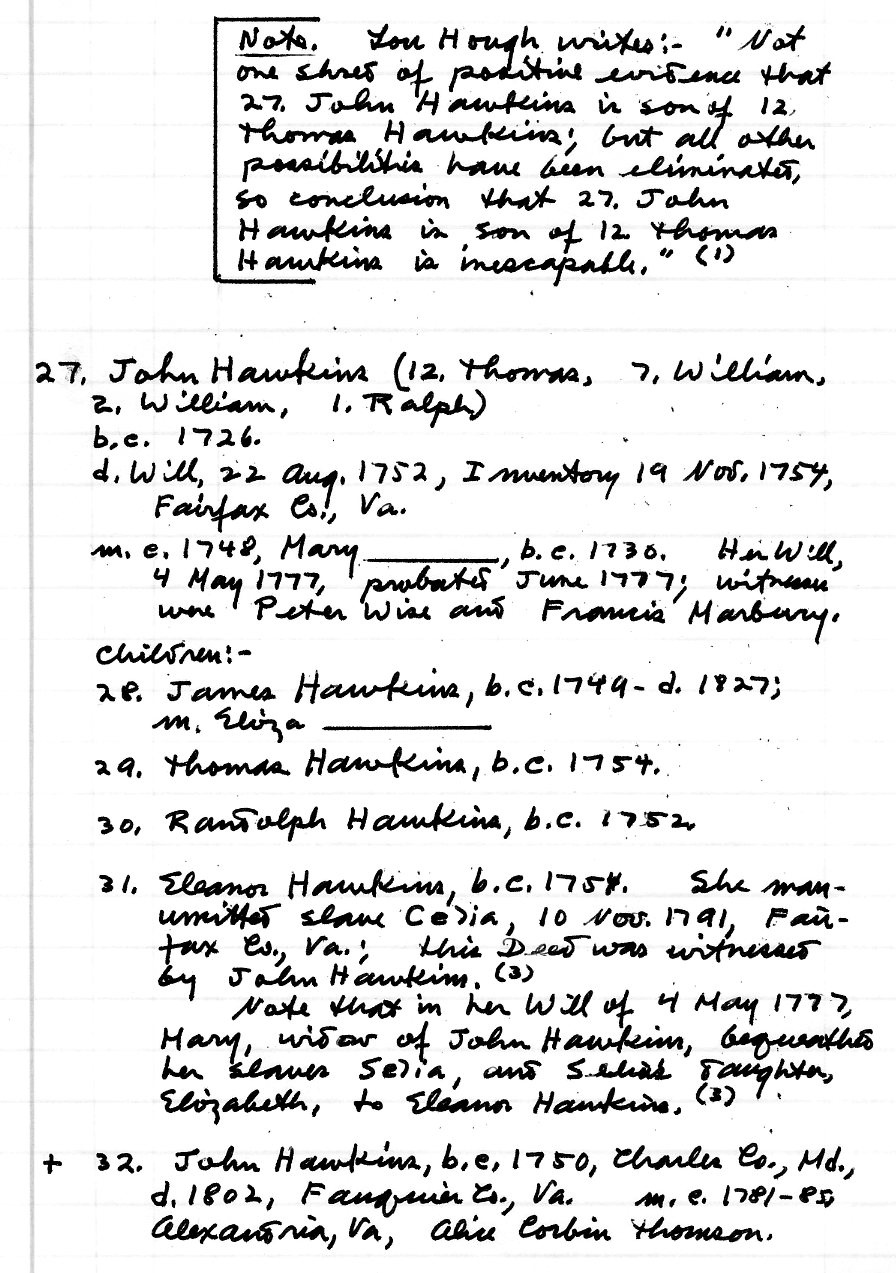 Note. Lou Hough writes:- "Not
one shred of positive evidence that
27. John Hawkins is son of 12.
Thomas Hawkins; but all other
possibilities have been eliminated,
so conclusion that 27. John
Hawkins is son of 12 Thomas
Hawkins is inescapable." (1)
27. John Hawkins (12. Thomas, 7. William,
2. William, 1. Ralph)
b.c. 1726.
d. Will, 22 Aug. 1752, Inventory 19 Nov. 1754,
Fairfax Co., Va.
m. c. 1748, Mary ________, b.c. 1730. Her Will,
4 May 1777, probated June 1777; witnesses
were Peter Wise and Francis Marbury.
Children:-
28. James Hawkins, b.c. 1749- d. 1827;
m. Eliza ________
29. Thomas Hawkins, b.c. 1754.
30. Randolph Hawkins, b.c. 1752.
31. Eleanor Hawkins, b.c. 1754. She man-
umitted slave Celia, 10 Nov. 1791, Fair-
fax Co., Va.; this Deed was witnessed
by John Hawkins. (3)
Note that in her Will of 4 May 1777,
Mary, widow of John Hawkins, bequeathed
her slaves Selia, and Selia's daughter,
Elizabeth, to Eleanor Hawkins. (3)
+ 32. John Hawkins, b.c. 1750, Charles Co., Md.,
d. 1802, Fauquier Co., Va. m. c. 1781-85,
Alexandria, Va, Alice Corbin Thomson.